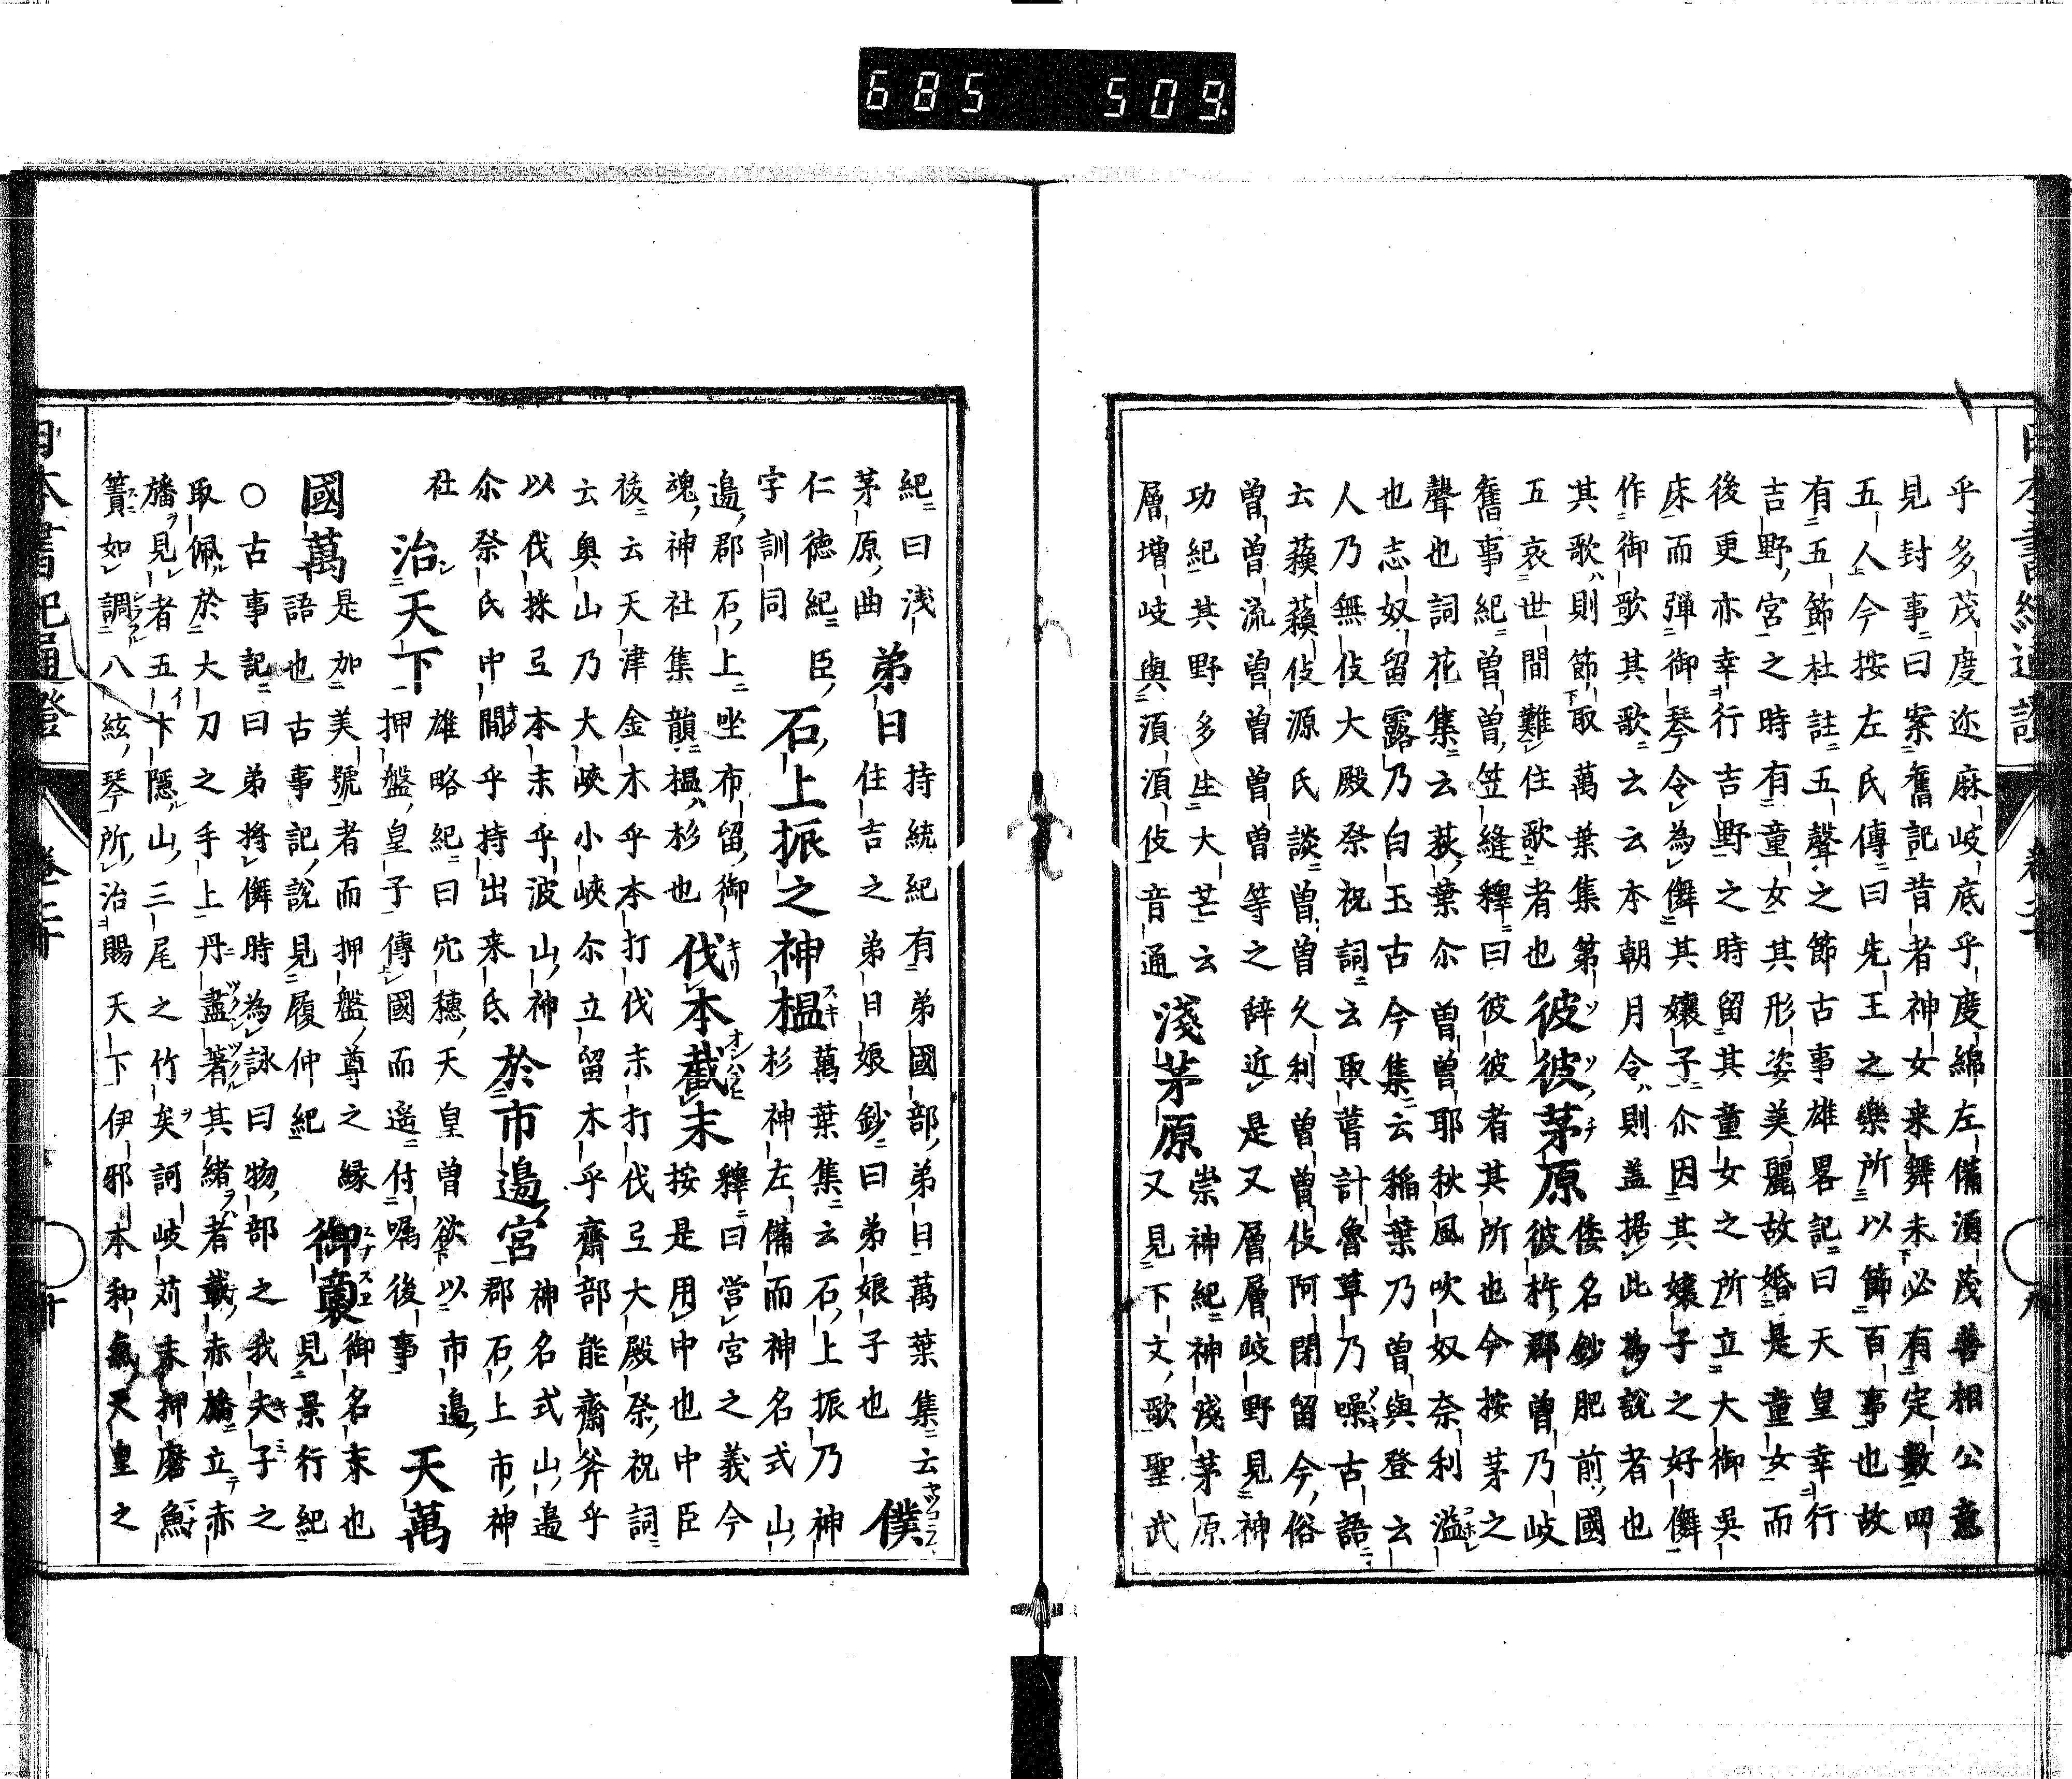 685 509
乎多茂度迩麻岐底乎度綿左備湏茂善相公意
見封事曰案舊記昔者神女来舞未必有定數四
五人今按左氏傳曰先王之樂所以節百事也故
有五節杜註五聲之節古事雄畧記曰天皇幸行
吉野宮之時有童女其形姿美麗故婚是童女而
後更亦幸行吉野之時留其童女之所立大御吳
床而弾御琴令為儛其孃子尒因其孃子之好儛
作御歌其歌云云本朝月令則盖据此為說者也
其歌ハ則節取萬葉集第
五哀世間難住歌者也
彼彼茅原
倭名鈔肥前國
彼杵郡曽乃岐
舊事紀曽曽笠縫釋曰彼彼者其所也今按茅之
聲也詞花集云荻葉尒曽曽耶秋風吹奴奈利溢
也志奴留露乃白玉古今集云稲葉乃曽與登云
人乃無伎大殿祭祝詞云取葺計魯草乃噪古語
云蘓蘓伎源氏談曽曽久利曽曽伎阿閇留今俗
曽曽流曽曽曽等之辞近是又層層岐野見神
功紀其野多生大芒云
層増岐與湏湏伎音通
淺茅原
崇神紀神淺茅原
又見下文歌聖武
紀曰浅
茅原曲
弟日
持統紀有弟國部弟日萬葉集云
住吉之弟日娘鈔曰弟娘子也
僕
仁徳紀臣
字訓同
石上振之神榲
萬葉集云石上振乃神
杉神左備而神名式山
邉郡石上坐布留御
魂神社集韻榲杉也
伐本截末
釋曰営宮之義今
按是用中也中臣
後云天津金木乎本打伐末打伐弖大殿祭祝詞
云奥山乃大峽小峽尒立留木乎齋部能齋斧乎
以伐採弖本末乎波山神
尒祭氐中間乎持出来氐
於市邉宮
神名式山邉
郡石上市神
社
治天下
雄略紀曰穴穗天皇曽欲以市邉
押盤皇子傳國而遥付嘱後事
天萬
國萬
是加美號者而押盤尊之縁
語也古事記說見履仲紀
御裔
御名末也
見景行紀
○古事記曰弟將儛時為詠曰物部之我夫子之
取佩於大刀之手上丹畫著其緒者載赤旛立赤
旛見者五十隠山三尾之竹矣訶岐苅末押靡魚
簀如調八絃琴所治賜天下伊邪本和氣天皇之